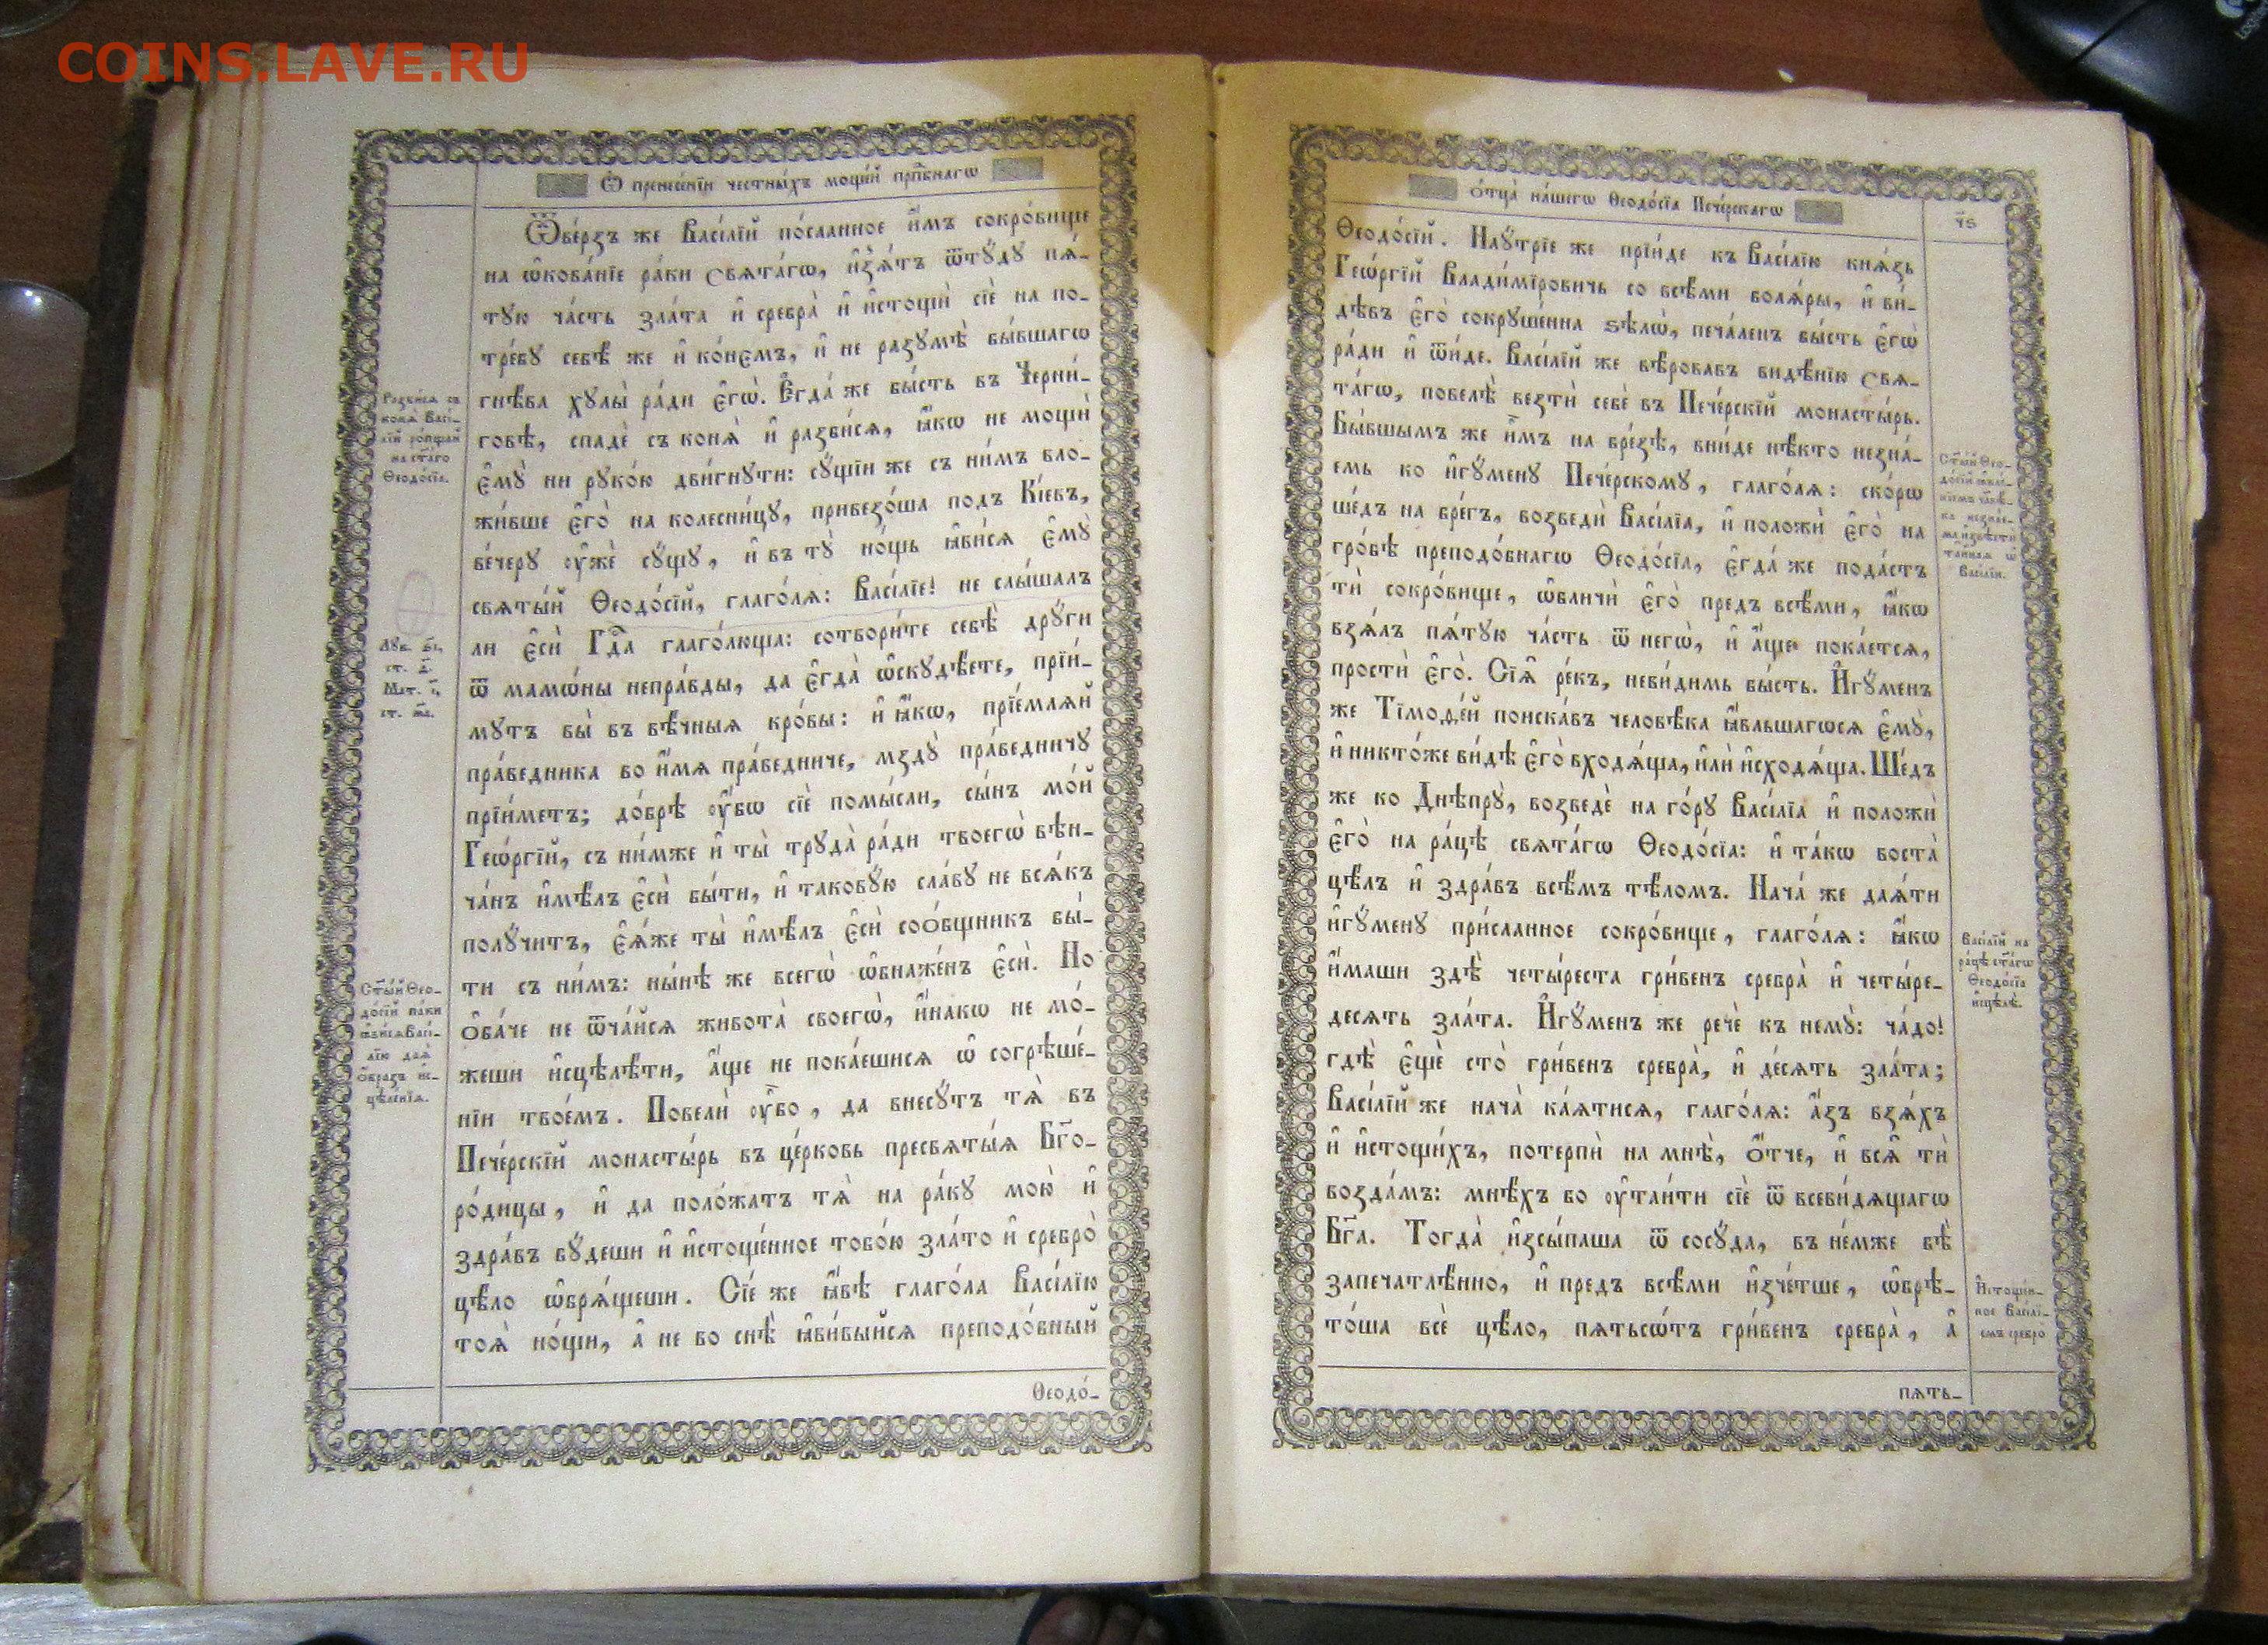 COINS.LAVE.RU
Ѽ пренесе́нїи честны́хъ моще́й прпⷣбнагѡ
Ѿве́рзъ же Васі́лїй по́сланное и҆́мъ сокро́вище
на ѡ҆кова́нїе ра́ки Свѧта́гѡ, и҆зѧ́тъ ѿтꙋ́дꙋ пѧ́-
тꙋю ча́сть зла́та и҆ сребра̀ и҆ и҆стощѝ сїѐ на по-
тре́бꙋ себѣ̀ же и҆ ко́нємъ, и҆ не разꙋмѣ̀ бы́вшагѡ
гнѣ́ва хꙋлы̀ ра́ди є҆гѡ̀. Є҆гда́ же бы́сть въ Черни́-
говѣ, спадѐ съ конѧ̀ и҆ разби́сѧ, ꙗ҆́кѡ не мощѝ
є҆мꙋ̀ ни рꙋко́ю дви́гнꙋти: сꙋ́щїи же съ ни́мъ вло-
жи́вше є҆го̀ на колесни́цꙋ, привезо́ша подъ Кі́евъ,
ве́черꙋ ᲂу҆жѐ сꙋ́щꙋ, и҆ въ тꙋ̀ но́щь ꙗ҆ви́сѧ є҆мꙋ̀
свѧты́й Ѳеодо́сїй, глаго́лѧ: Васі́лїе! не слы́шалъ
ли є҆сѝ Гдⷭ҇а глаго́люща: сотвори́те себѣ̀ дрꙋ́ги
ѿ мамѡ́ны непра́вды, да є҆гда̀ ѡ҆скꙋдѣ́ете, прїи́-
мꙋтъ вы̀ въ вѣ́чныѧ кро́вы: и҆ ꙗ҆́кѡ, прїе́млѧй
пра́ведника во и҆́мѧ пра́ведниче, мздꙋ̀ пра́ведничꙋ
прїи́метъ; до́брѣ ᲂу҆́бѡ сїѐ помы́сли, сы́нъ мо́й
Геѡ́ргїй, съ ни́мже и҆ ты̀ трꙋда̀ ра́ди твоегѡ̀ вѣн-
ча́нъ и҆мѣ́лъ є҆сѝ бы́ти, и҆ таковꙋ́ю сла́вꙋ не всѧ́къ
полꙋ́читъ, є҆ѧ́же ты̀ и҆мѣ́лъ є҆сѝ соѻ́бщникъ бы́-
ти съ ни́мъ: ны́нѣ же всегѡ̀ ѡ҆бнаже́нъ є҆сѝ. Но
ѻ҆ба́че не ѿча́йсѧ живота̀ своегѡ̀, и҆́накѡ не мо́-
жеши и҆сцѣлѣ́ти, а҆́ще не пока́ешисѧ ѡ҆ согрѣше́-
нїи твое́мъ. Повелѝ ᲂу҆̀бо, да внесꙋ́тъ тѧ̀ въ
Пече́рскїй монасты́рь въ це́рковь пресвѧты́ѧ Бг҃о-
ро́дицы, и҆ да поло́жатъ тѧ̀ на ра́кꙋ мою̀ и҆
здра́въ бꙋ́деши и҆ и҆стоще́нное тобо́ю зла́то и҆ сребро̀
цѣ́ло ѡ҆брѧ́щеши. Сїе́ же ꙗ҆́вѣ глаго́ла Васі́лїю
тоѧ̀ но́щи, а҆ не во снѣ̀ ꙗ҆ви́выйсѧ преподо́бный
Ѳеодо́-
Разби́сѧ съ
конѧ̀ Васі́-
лїй ропща́й
на ст҃а́го
Ѳеодо́сїа.
Ст҃ы́й Ѳео-
до́сїй па́ки
ꙗ҆ви́сѧ Васі́-
лїю даѧ̀
ѻ҆́бразъ и҆с-
цѣле́нїѧ.
ѻ҆тца̀ на́шегѡ Ѳеодо́сїа Пече́рскагѡ
ч҃ѕ
Ѳеодо́сїй. Наꙋ́трїе же прїи́де къ Васі́лїю кнѧ́зь
Геѡ́ргїй Влади́мїровичь со всѣ́ми болѧ́ры, и҆ ви́-
дѣвъ є҆го̀ сокрꙋше́нна ѕѣлѡ̀, печа́ленъ бы́сть є҆гѡ̀
ра́ди и҆ ѿи́де. Васі́лїй же вѣ́ровавъ видѣ́нїю Свѧ-
та́гѡ, повелѣ̀ везтѝ себѐ въ Пече́рскїй монасты́рь.
Бы́вшымъ же и҆̀мъ на бре́зѣ, вни́де нѣ́кто незна́-
емь ко и҆гꙋ́менꙋ Пече́рскомꙋ, глаго́лѧ: ско́рѡ
ше́дъ на бре́гъ, возведѝ Васі́лїа, и҆ положѝ є҆го̀ на
гро́бѣ преподо́бнагѡ Ѳеодо́сїа, є҆гда́ же пода́стъ
тѝ сокро́вище, ѡ҆бличѝ є҆го̀ предъ всѣ́ми, ꙗ҆́кѡ
взѧ́лъ пѧ́тꙋю ча́сть ѿ негѡ̀, и҆ а҆́ще пока́етсѧ,
простѝ є҆го̀. Сїѧ҄ ре́къ, неви́димь бы́сть. И҆гꙋ́менъ
же Тїмоѳе́й поиска́въ человѣ́ка ꙗ҆́вльшагѡсѧ є҆мꙋ̀,
и҆ никто́же ви́дѣ є҆го̀ входѧ́ща, и҆лѝ и҆сходѧ́ща. Ше́дъ
же ко Днѣпрꙋ̀, возведѐ на го́рꙋ Васі́лїа и҆ положѝ
є҆го̀ на ра́цѣ свѧта́гѡ Ѳеодо́сїа: и҆ та́кѡ воста̀
цѣ́лъ и҆ здра́въ всѣ́мъ тѣ́ломъ. Нача́ же даѧ́ти
и҆гꙋ́менꙋ при́сланное сокро́вище, глаго́лѧ: ꙗ҆́кѡ
и҆́маши здѣ̀ четы́реста гри́венъ сребра̀ и҆ четы́ре-
десѧть зла́та. И҆гꙋ́менъ же речѐ къ немꙋ̀: ча́до!
гдѣ̀ є҆щѐ сто̀ гри́венъ сребра̀, и҆ де́сѧть зла́та;
Васі́лїй же нача̀ ка́ѧтисѧ, глаго́лѧ: а҆́зъ взѧ́хъ
и҆ и҆стощи́хъ, потерпѝ на мнѣ̀, ѻ҆́тче, и҆ всѧ҄ тѝ
возда́мъ: мнѣ́хъ бо ᲂу҆таи́ти сїѐ ѿ всеви́дѧщагѡ
Бг҃а. Тогда̀ и҆зсы́паша ѿ сосꙋ́да, въ не́мже бѣ̀
запечатлѣ́нно, и҆ предъ всѣ́ми и҆зче́тше, ѡ҆брѣ-
то́ша всѐ цѣ́ло, пѧтьсѡ́тъ гри́венъ сребра̀, а҆
пѧть-
Васі́лїй на
ра́цѣ ст҃а́гѡ
Ѳеодо́сїа
и҆сцѣлѣ̀.
И҆стоще́н-
ное Васі́лї-
емъ сребро̀